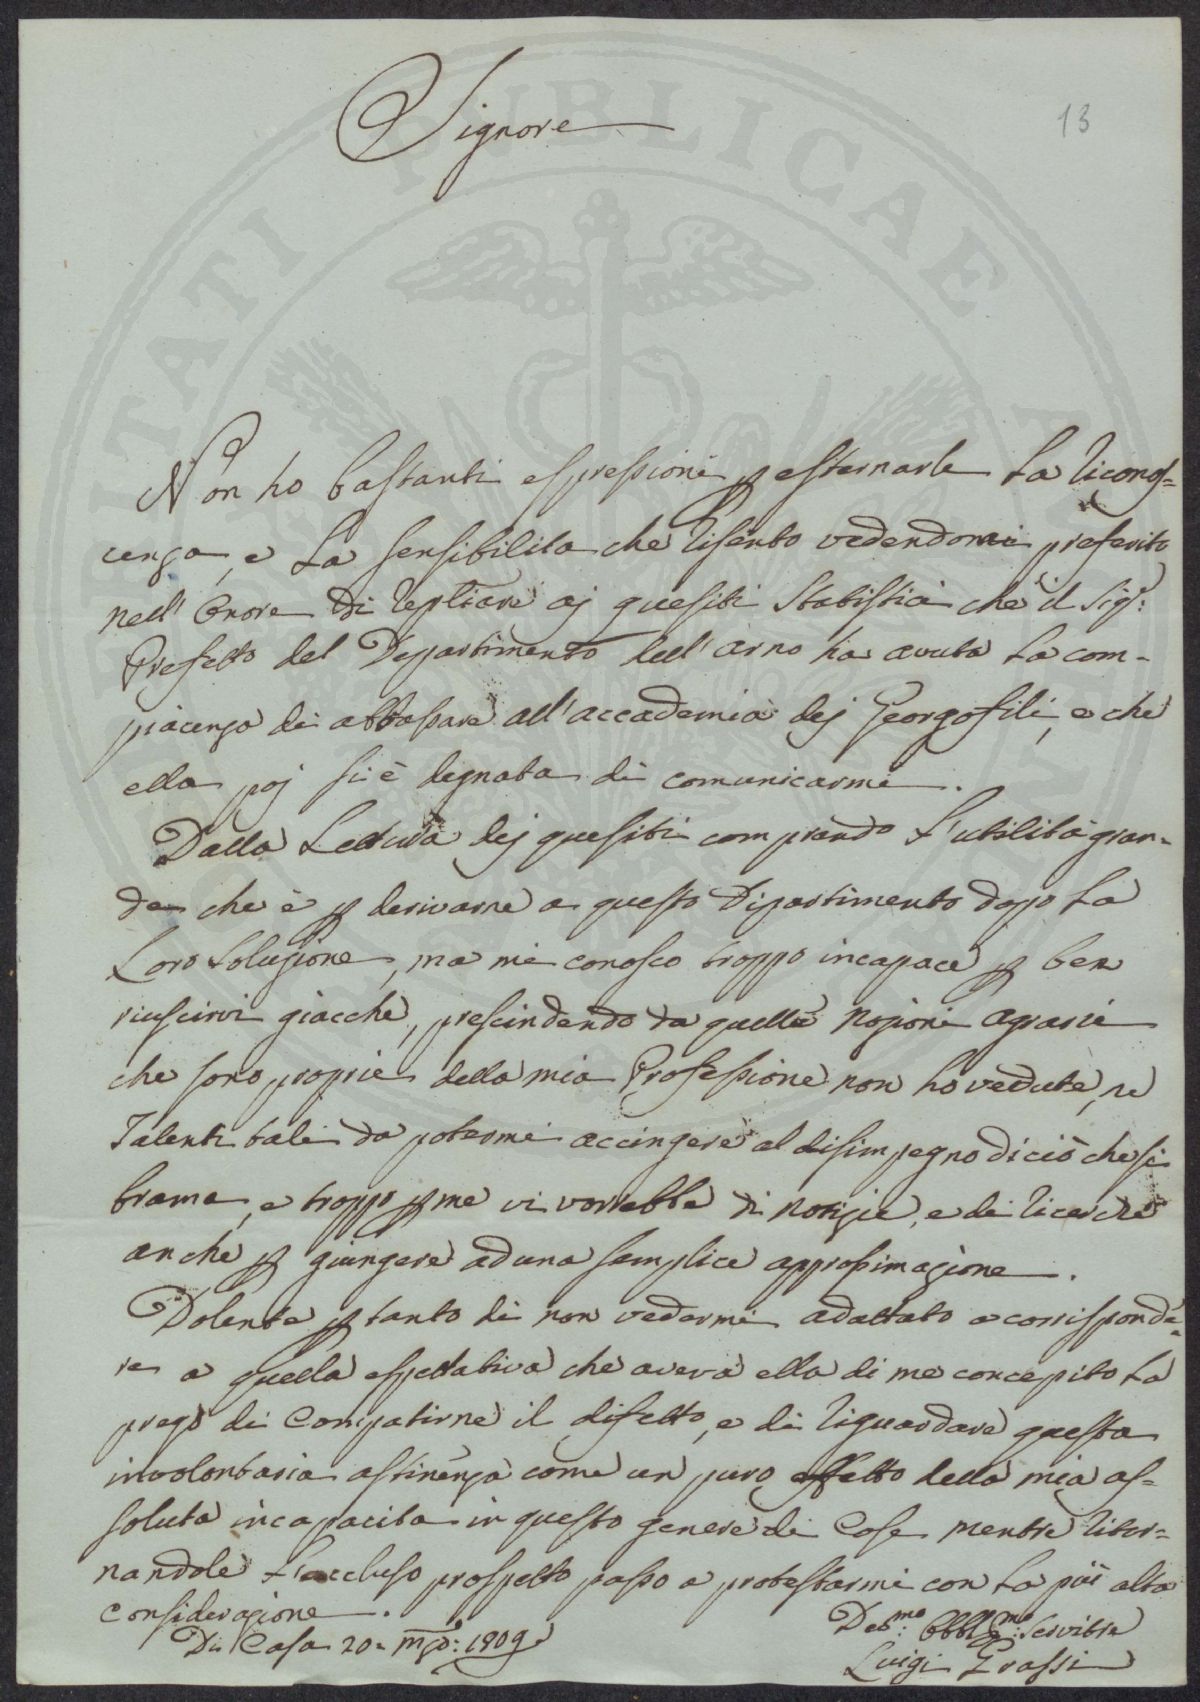 13
Signore
Non ho bastanti espressioni p esternarle la ricono-
cenza, e la sensibilità che risento vedendomi preferito
nell'onore di replicare aj quesiti Statistici che il Sigr:
Prefetto del Dipartimento dell'arno ha avuta la com-
piacenza di abbassare all'accademia dej Georgofili, e che
ella poj si è degnata di comunicarmi.
Dalla Lettura dej quesiti comprendo l'utilità gran-
de che è p derivarne a questo Dipartimento dopo la
Loro soluzione, ma mi conosco troppo incapace p ben
riuscirvi giacchè, prescindendo da quelle nozioni agrarie
che sono proprie della mia Professione non ho vedute, ne
Talenti tali da potermi accingere al disimpegno di ciò che si
brama, e troppo p me vi vorrebbe di notizie, e di ricerche
anche p giungere ad una semplice approssimazione.
Dolente p tanto di non vedermi adattato a corrisponde-
re a quella espettativa che aveva ella di me concepito la
prego di Compatirne il difetto, e di riguardare questa
involontaria astinenza come un puro effetto della mia as-
soluta incapacità in questo genere di Cose mentre ritor-
nandole l'accluso prospetto passo a protestarmi con la più alta
Considerazione.
Di Casa 20 1809
Devmo: Obblgmo: Servitre
Luigi Grassi
SANITATI PUBLICAE